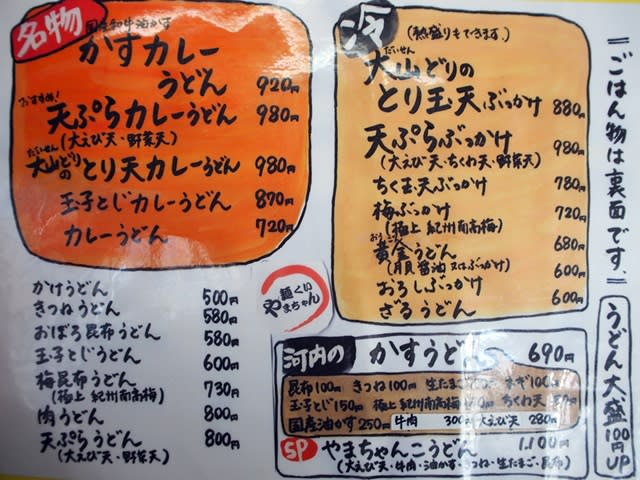 名物
国産和牛油かす
かすカレー
うどん 920円
おすすめ!
天ぷらカレーうどん 980円
(大えび天・野菜天)
だいせん
大山どりの とり天カレーうどん 980円
玉子とじカレーうどん 870円
カレーうどん 720円
かけうどん 500円
きつねうどん 580円
おぼろ昆布うどん 580円
玉子とじうどん 600円
梅昆布うどん 730円
(極上 紀州南高梅)
肉うどん 800円
天ぷらうどん 800円
(大えび天・野菜天)
麺くい
やまちゃん
冷
(熱盛りもできます。)
だいせん
大山どりの
とり玉天ぶっかけ 880円
天ぷらぶっかけ 980円
(大えび天・ちくわ天・野菜天)
ちく玉天ぶっかけ 780円
梅ぶっかけ 720円
(極上 紀州南高梅)
黄金うどん 680円
(肉醤油又はぶっかけ)
おろしぶっかけ 600円
ざるうどん 600円
河内の かすうどん 690円
昆布100円 きつね100円 生たまご ネギ100円
玉子とじ150円 極上 紀州南高梅 ちくわ天
国産油かす250円 牛肉 300円 大えび天 280円
SP やまちゃんこうどん 1,100円
(大えび天・牛肉・油かす・きつね・生たまご・昆布)
ごはん物は裏面です。
うどん大盛100円UP